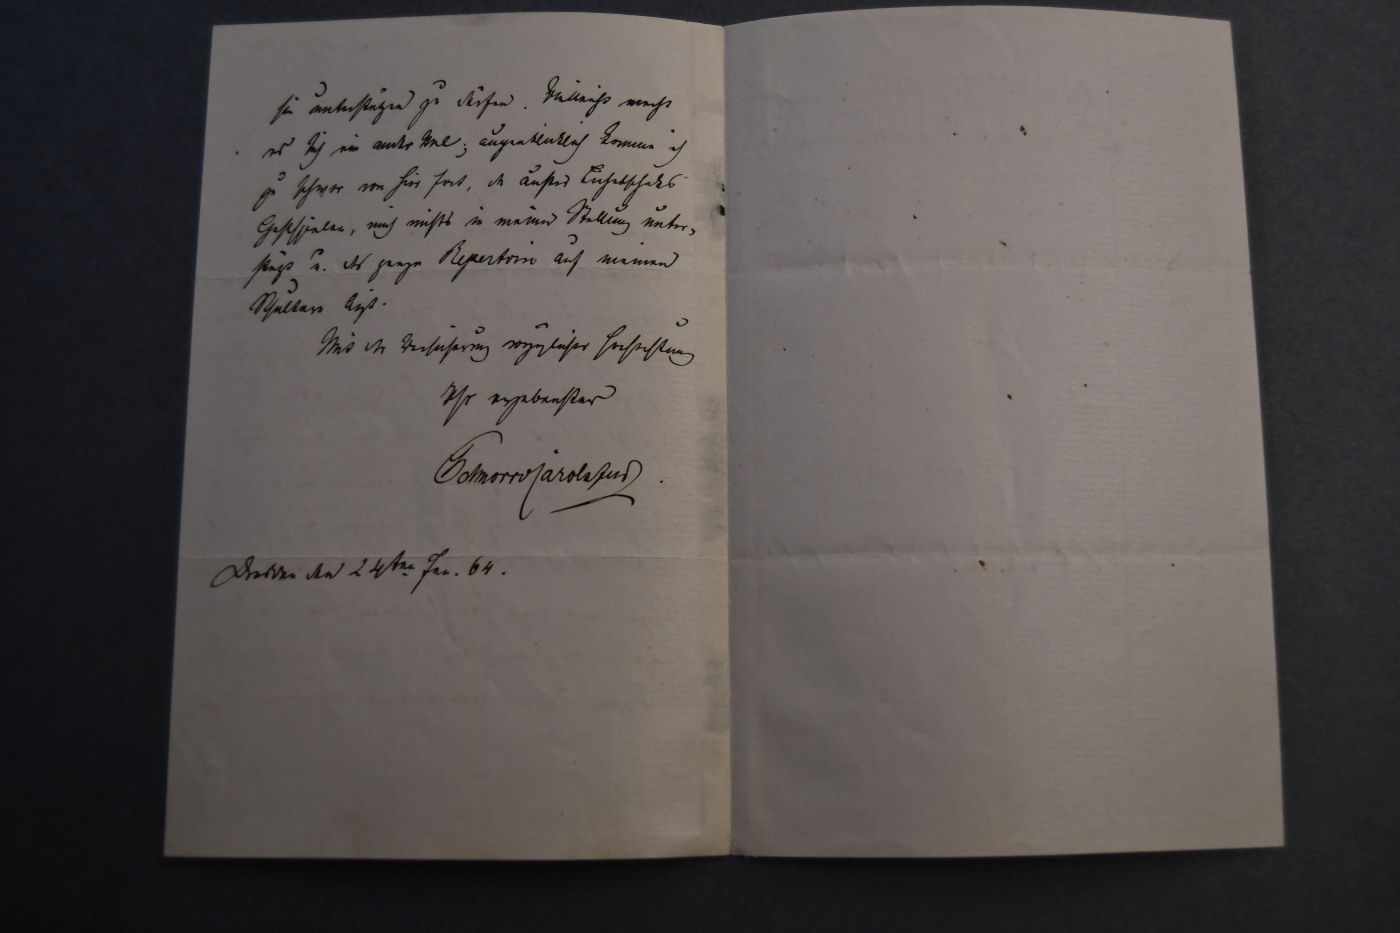 sie unterstützen zu dürfen. Vielleicht macht
es sich ein ander Mal; augenblicklich komme ich
zu schwer von hier fort, da außer Tichatscheks
Gastspielen, mich nichts in meiner Stellung unter-
stützt u. das ganze Repertoire auf meinen
Schultern liegt.
Mit der Versicherung vorzüglicher Hochachtung
Ihr ergebenster
SchnorrvCarolsfeld.
Dresden den 24ten Jan. 64.